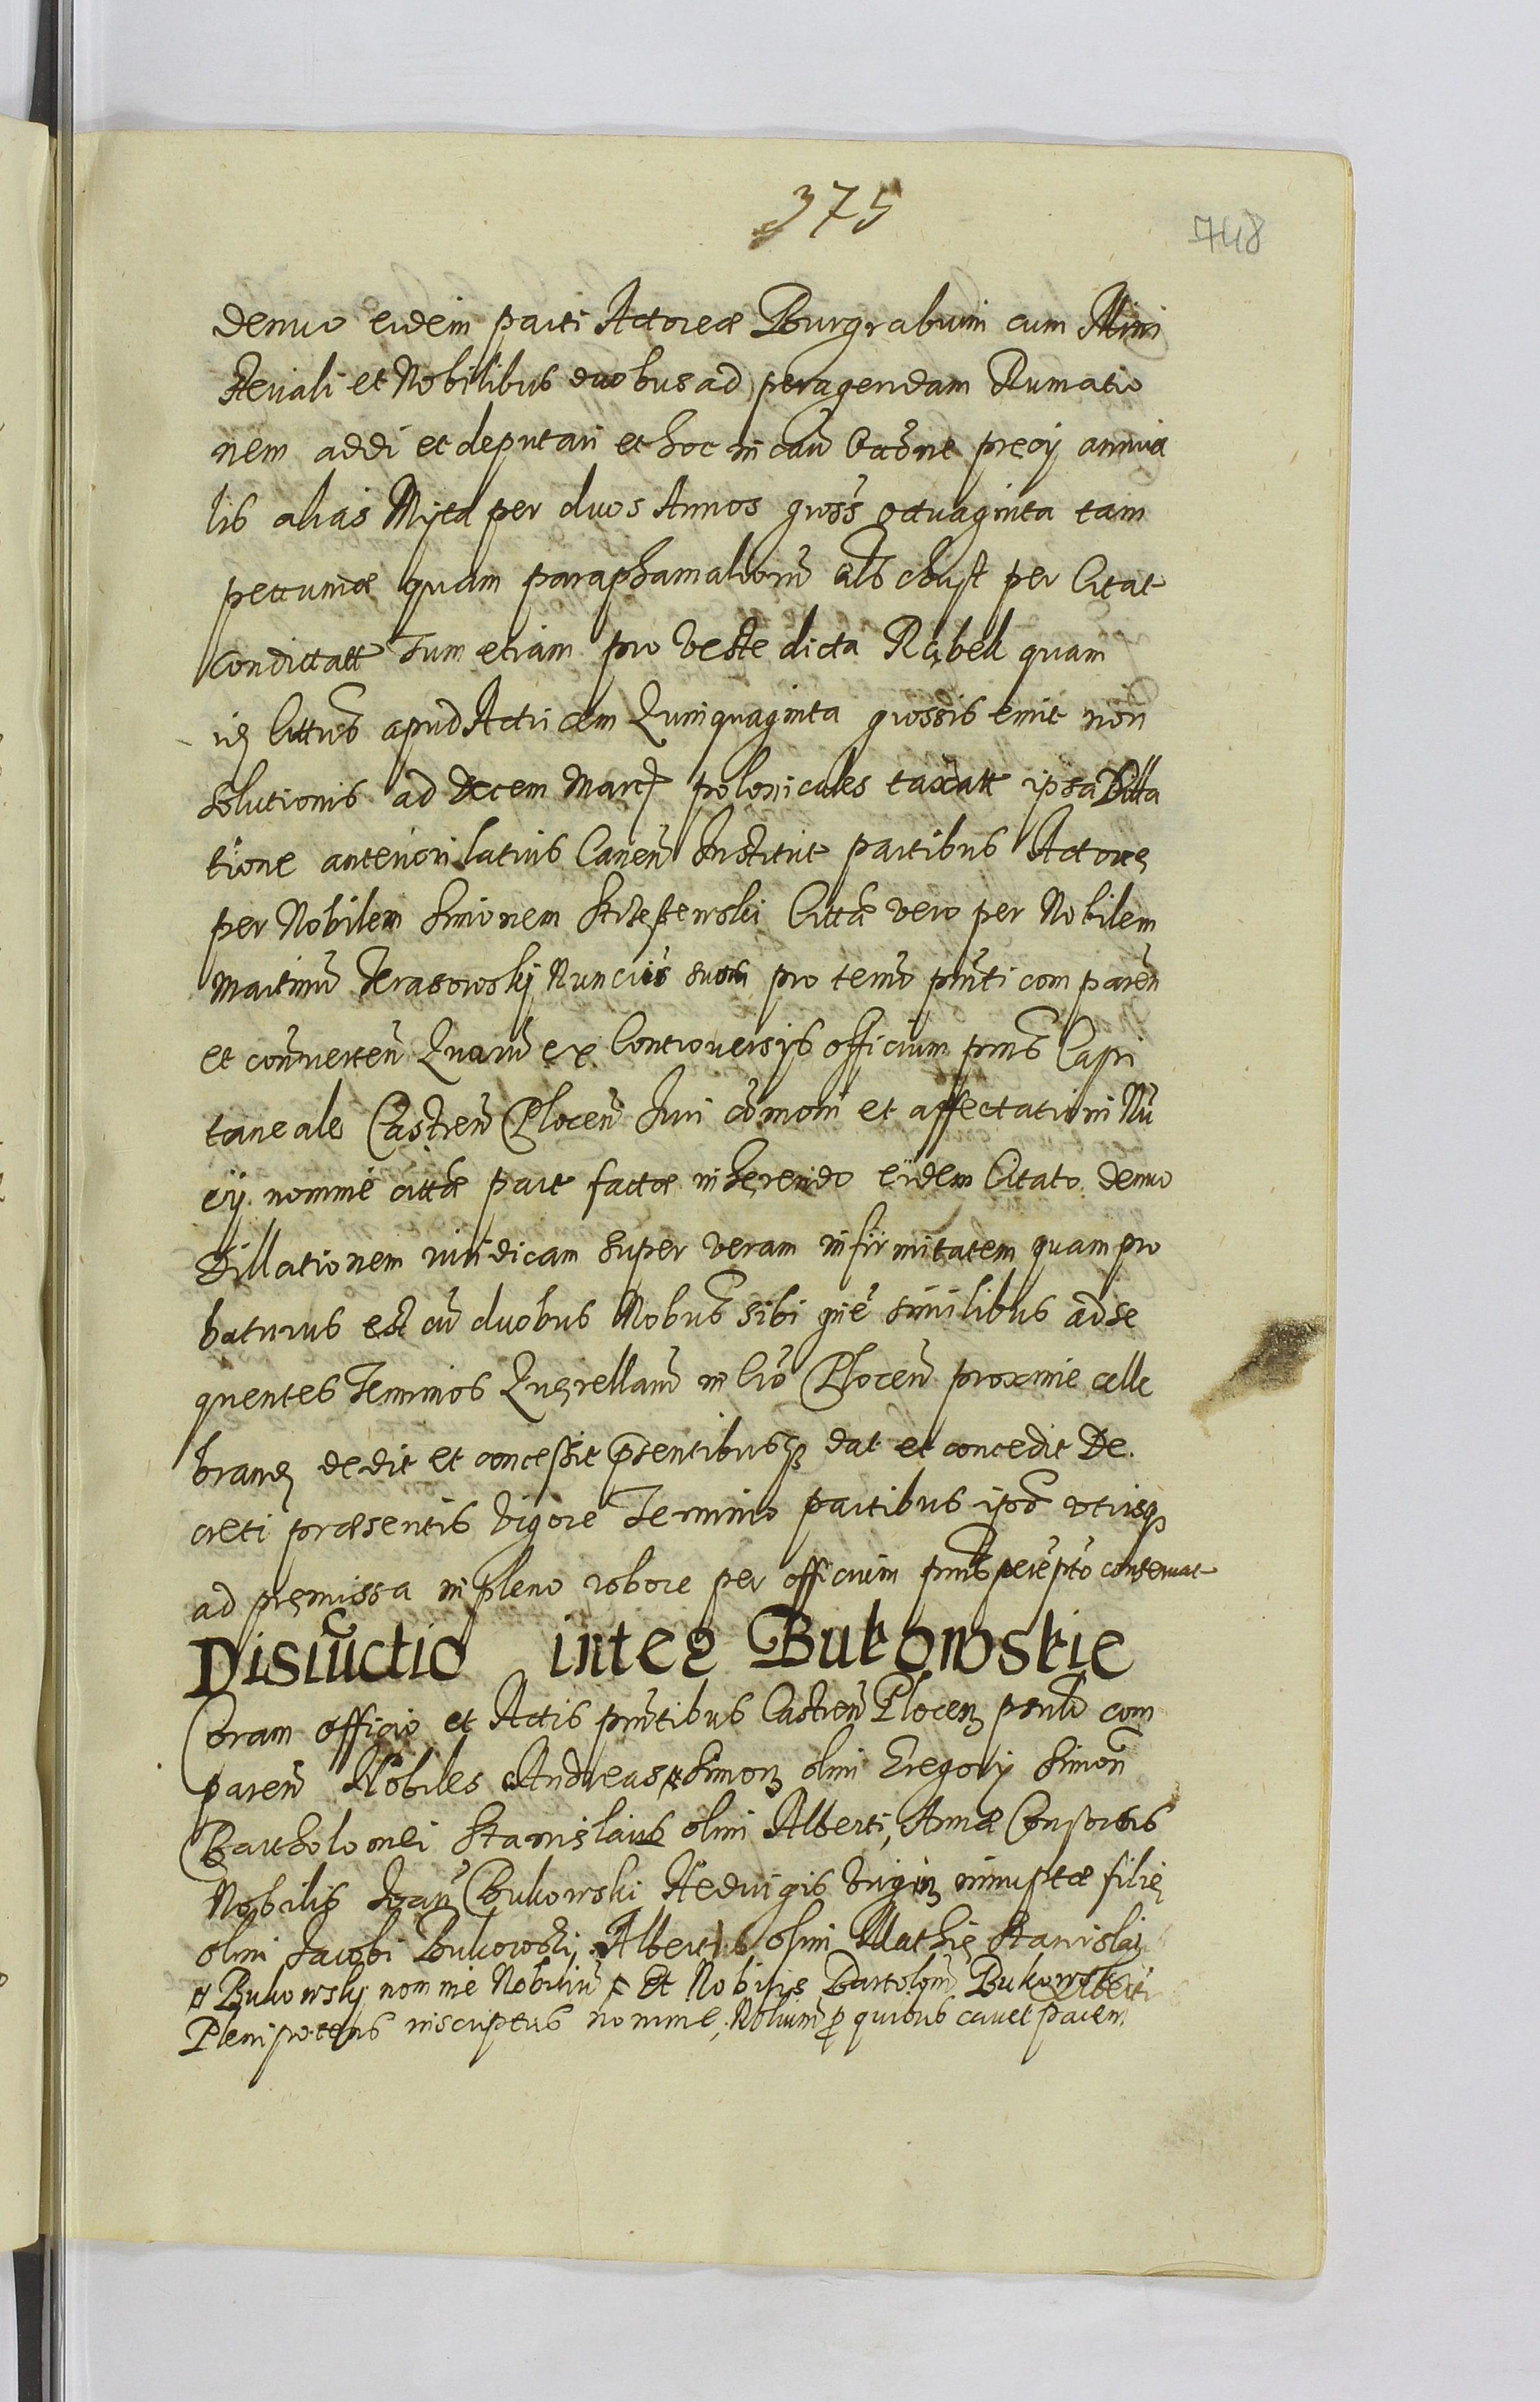 375
748
denuo eidem parti Actoreae Burgrabium cum Mini
steriali et Nobilibus duobus ad peragendam Rumatio
nem addi et deputari et hoc in cau̅ raõne precij annua
lis alias Myta per duos Annos gross octuaginta tam
peccuniae quam paraphamaliorũ als chust per Citat
condictatt Tum etiam pro veste dicta Rąbek quam
idem Cittus apud Actricem Quinquaginta grossis emit non
solutionis ad decem marc polonicales taxatt ipsa Dilla
tione anteriori latius Canen̅ Institut partibus Actorea
per Nobilem Simonem Citta vero per Nobilem
Martinũ Terasowsky Nuncios suos pro termino pn̅ti comparen̅
et conuerten̅ Quarũ ex Controuersijs officium pn̅s Capi
taneale Castren̅ Plocen̅ Iuri cõmoni et affectationi Nũ
cij nomine cittae part factae inherendo eidem Citato denuo
Dillationem iuridicam super veram infirmitatem quam pro
baturus est cũ duobus Nobus sibi gn̅e similibus ad se
quentes Terminos Querellarũ in Cro Plocen̅ proxime celle
brand dedit et concessit p̅sentibusq dat et concedit De.
creti praesentis vigore Termino partibus ipõ vtrisq
ad premissa in pleno robore per officium pn̅s conseruat
Disiũctio inter Bukowskie
Coram officio et Actis pn̅tibus Castren̅ Plocen com
paren̅ Nobiles Andreas # Simon olim Gregorij Simon̅
Bartholomei Stanislaus olim Alberti, Annae Consortis
Nobilis Ioan̅ Bukowski Heduigis virgin innuptae filię
olim Jacobi Bukowski, Albertus olim Mathię Stanislai
# Bukowsky nomine Nobiliũ # Et Nobilis Bartolom̅ Bukowski Alberti
Plenipotens inscriptus nomine, Nobiliũ p quibus cauet paren